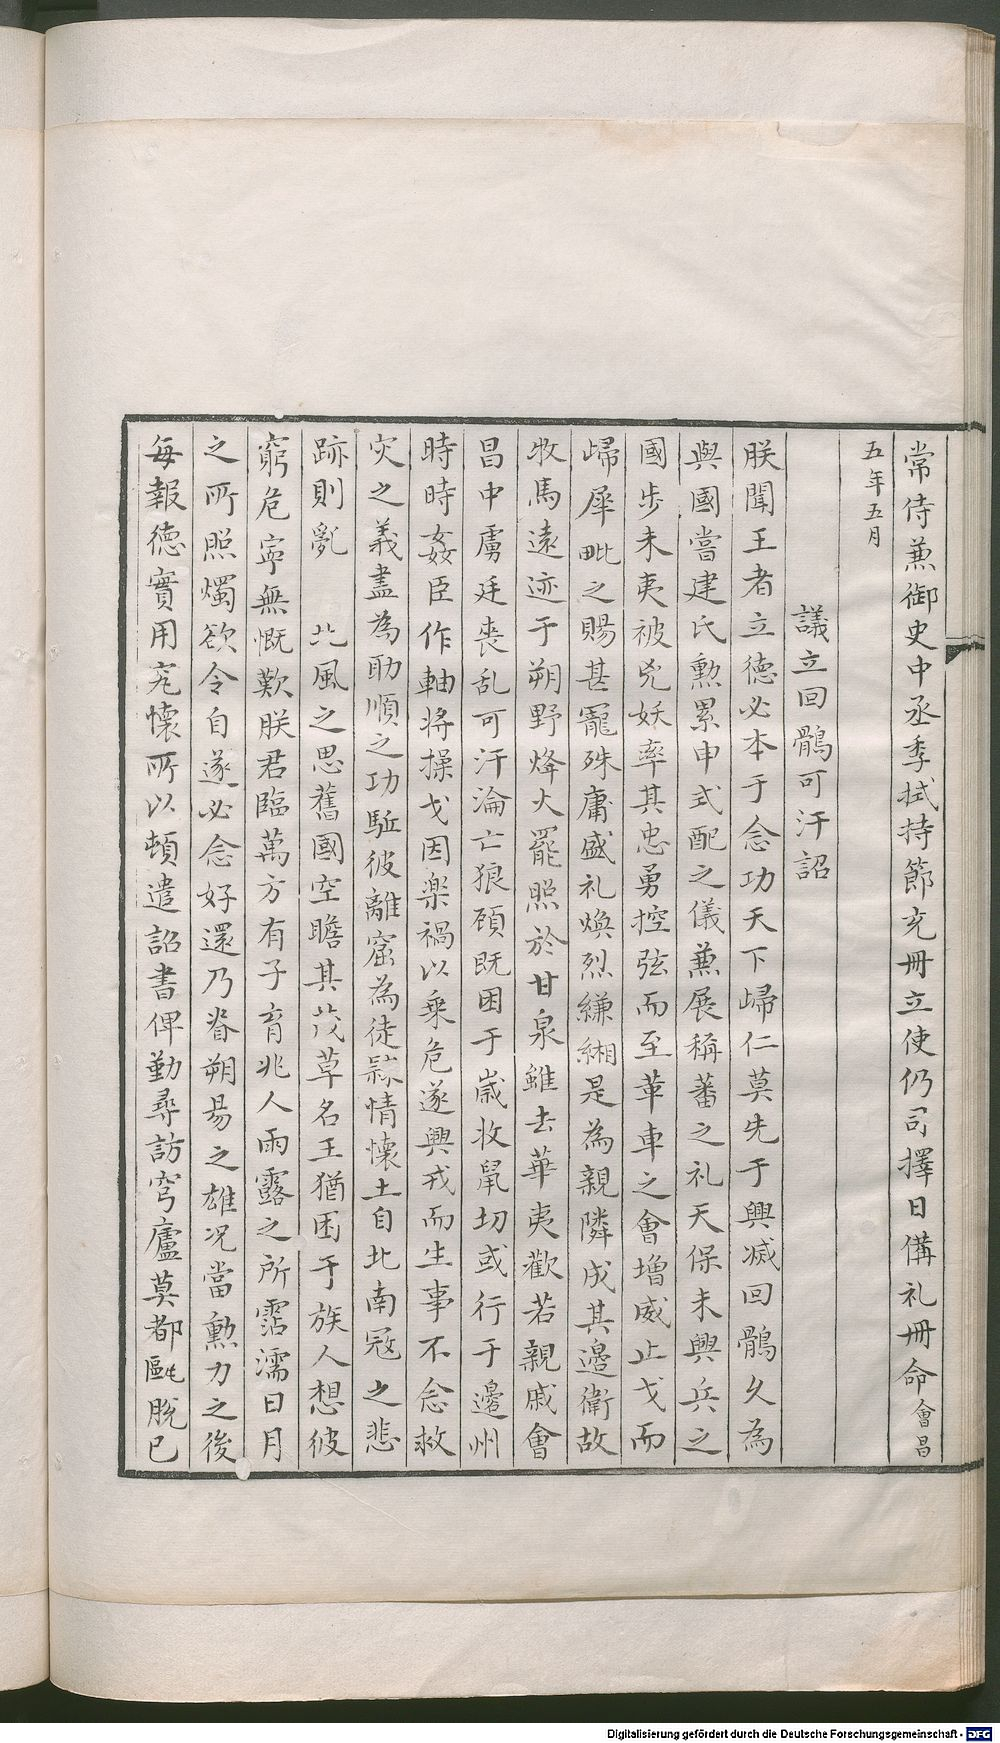 常侍兼御史中丞李拭持節充冊立使仍司擇日備礼冊命會昌
五年五月
議立回鶻可汗詔
朕聞王者立德必本于念功天下歸仁莫先于興滅回鶻久為
與國嘗建氏勲累申式配之儀兼展稱蕃之礼天保未興兵之
國步未夷被兇妖率其忠勇控弦而至革車之會增威止戈而
歸犀毗之賜甚寵殊庸盛礼煥烈縑緗是為親隣成其邊衛故
牧馬遠迹于朔野烽火罷照於甘泉雖去華夷歡若親戚會
昌中虜廷丧乱可汗淪亡狼顧既困于歲收鼠切或行于邊州
時時姦臣作軸將操戈因楽禍以乗危遂興戎而生事不念救
灾之義盡為助順之功駈彼離窟為徒隸情懷土自北南冠之悲
跡則亂 北風之思舊國空瞻其茂草名王猶困于族人想彼
窮危寧無慨歎朕君臨萬方有子育兆人雨露之所霑濡日月
之所照燭欲令自遂必念好還乃眷朔易之雄况當勲力之後
每報德實用究懷所以頓遣詔書俾勤尋訪穹廬莫都甌脱已
Digitalisierung gefördert durch die Deutsche Forschungsgemeinschaft - DFG